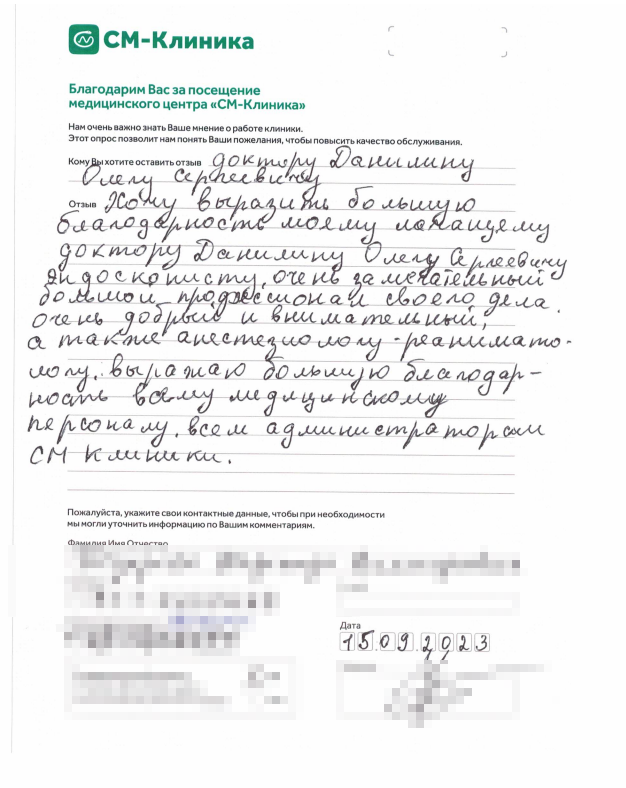 СМ-Клиника
Благодарим Вас за посещение
медицинского центра «СМ-Клиника»
Нам очень важно знать Ваше мнение о работе клиники.
Этот опрос позволит нам понять Ваши пожелания, чтобы повысить качество обслуживания.
Кому Вы хотите оставить отзыв доктору Данилину
Олегу Сергеевичу
Отзыв Хочу выразить большую
благодарность моему лачащему
доктору Данилину Олегу Сергеевичу
эндоскописту, очень замечательный
большой профессионал своего дела.
очень добрый и внимательный,
а также анестезиологу-реанимато-
логу, выражаю большую благодар-
ность всему медицинскому
персоналу, всем администраторам
СМ клиники.
Пожалуйста, укажите свои контактные данные, чтобы при необходимости
мы могли уточнить информацию по Вашим комментариям.
Фамилия Имя Отчество
Дата
15.09.2023